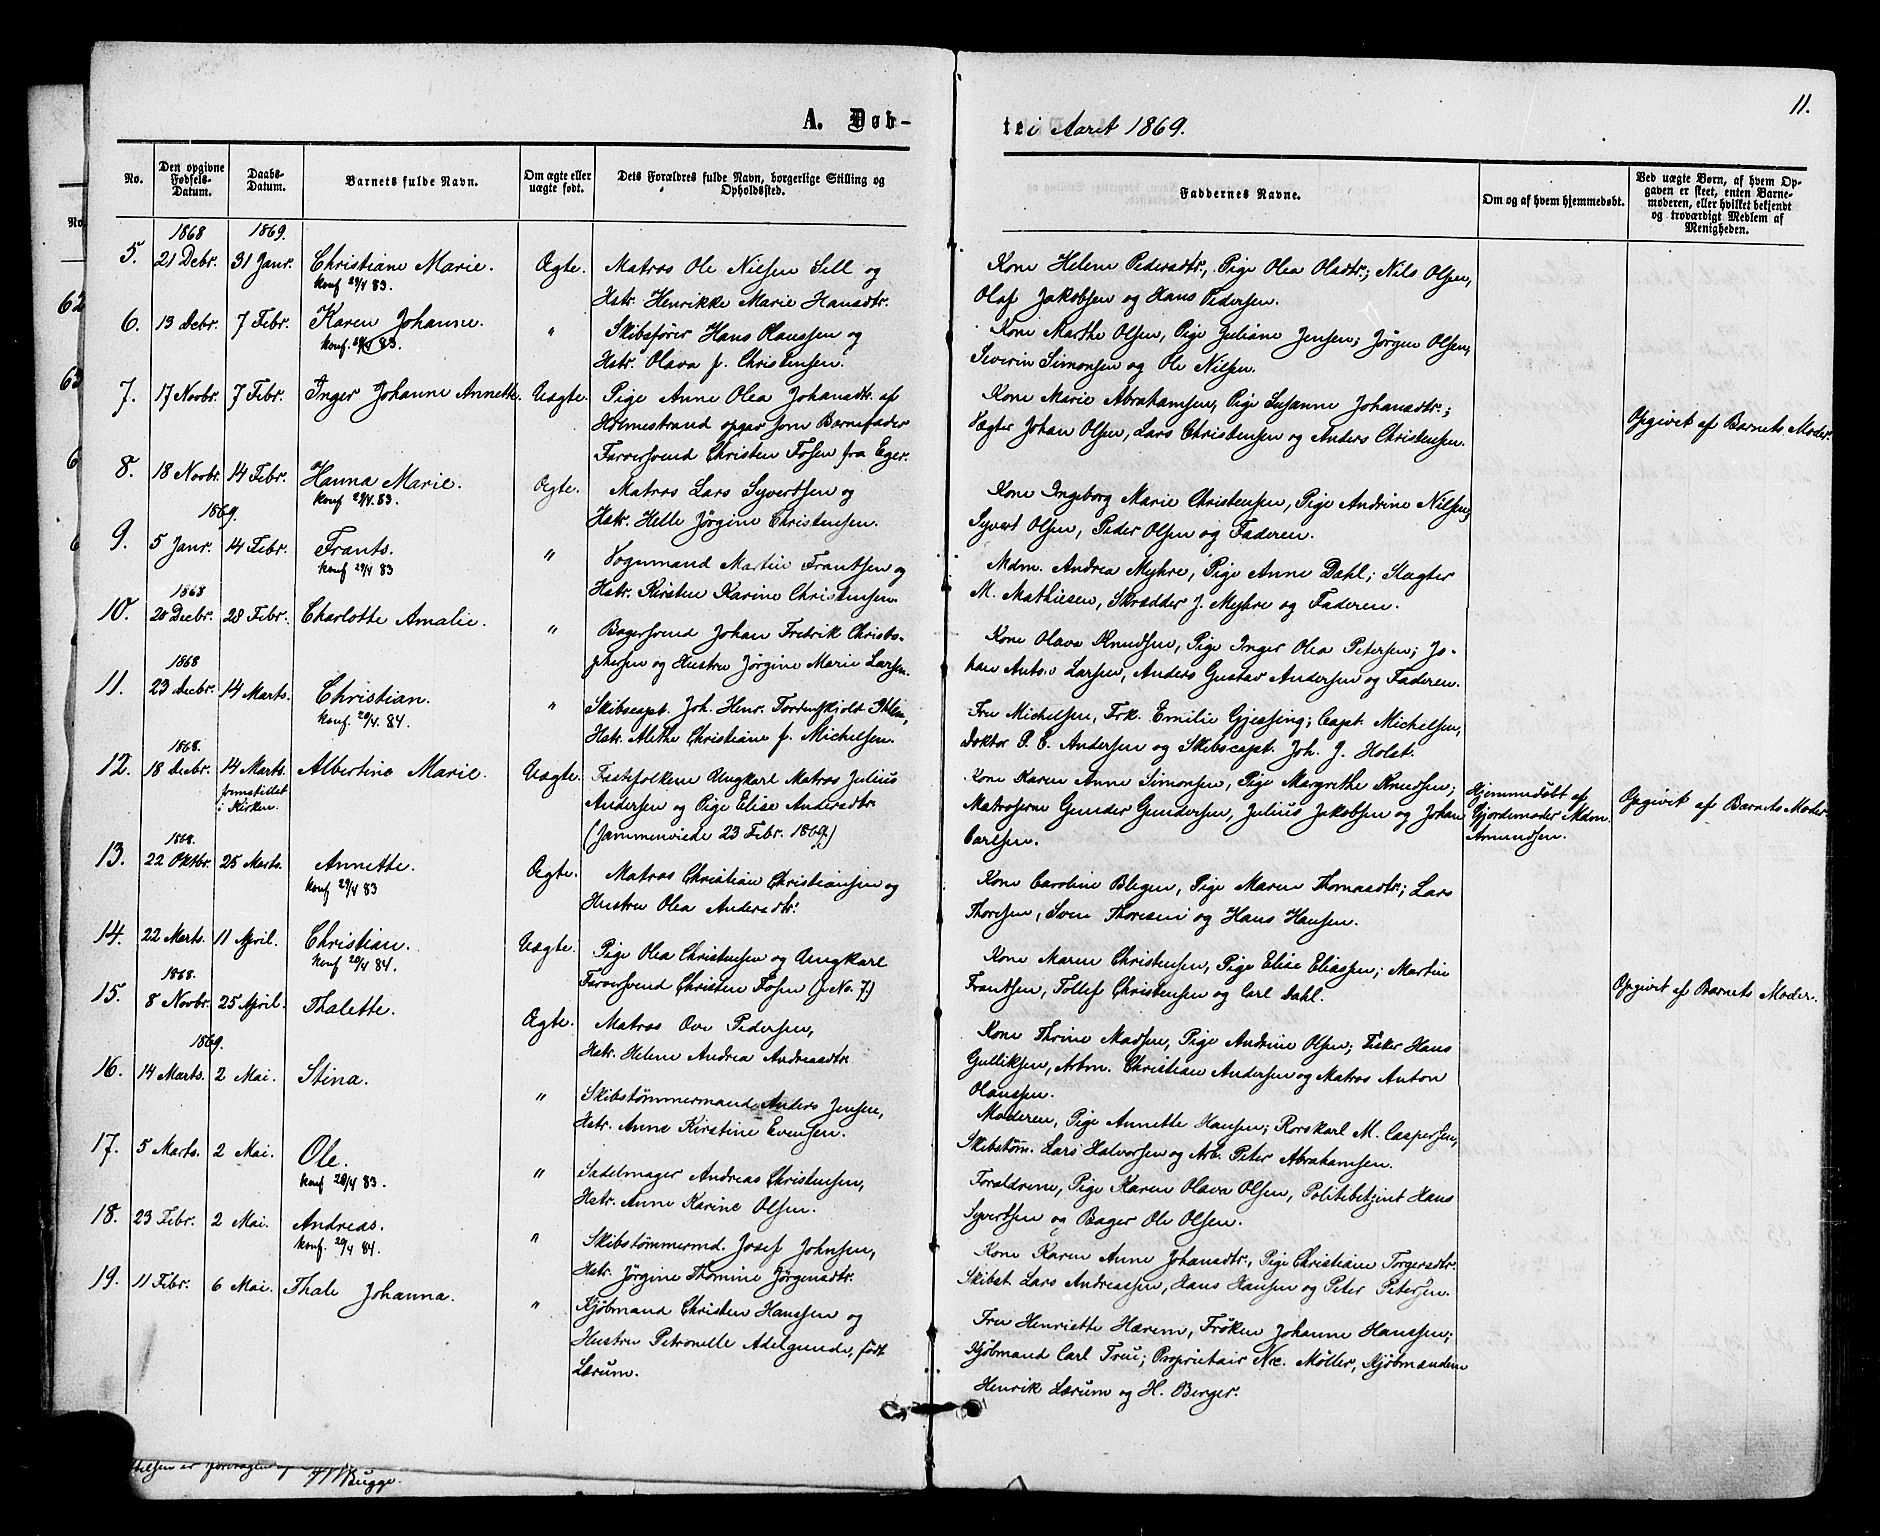 11.
A. Døb-
te i Aaret 1869.
No.
Den opgivne Fødsels-Datum.
Daabs-Datum.
Barnets fulde Navn.
Om ægte eller uægte født.
Dets Forældres fulde Navn, borgerlige Stilling og Opholdssted.
Faddernes Navne.
Om og af hvem hjemmedøbt.
Ved uægte Børn, af hvem Opgaven er skeet, enten Barnemoderen, eller hvilket bekjendt og troværdigt Medlem af Menigheden.
1868 1869.
5. 21 Decbr. 31 Janr. Christiane Marie. Ægte. Matros Ole Nilsen Sell og
konf 29/4 83. Hstr. Henrikke Marie Hansdtr.
Kone Helene Pedersdtr., Pige Olea Olsdtr.; Nils Olsen,
Olaf Jakobsen og Hans Pedersen.
6. 13 Decbr. 7 Febr. Karen Johanne. " Skibsfører Hans Olaussen og
konf. 29/4 83. Hstr. Olava f. Christensen.
Kone Marthe Olsen, Pige Juliane Jensen; Jørgen Olsen,
Severin Simonsen og Ole Nilsen.
7. 17 Novbr. 7 Febr. Inger Johanne Annette. Uægte. Pige Anne Olea Johansdtr. af
Holmestrand opgav som Barnefader
Farversvend Christen Fosen fra Eger.
Kone Marie Abrahamsen, Pige Susanne Johansdtr.;
Vægter Johan Olsen, Lars Christensen og Anders Christensen.
Opgivet af Barnets Moder.
8. 18 Novbr. 14 Febr. Hanna Marie. Ægte. Matros Lars Syvertsen og
konf 29/4 83. Hstr. Helle Jørgine Christensen.
Kone Ingeborg Marie Christensen, Pige Andrine Nilsen,
Syvert Olsen, Peder Olsen og Faderen.
1869.
9. 5 Janr. 14 Febr. Frants. " Vognmand Martin Frantsen og
konf 29/4 83 Hstr. Kirsten Karine Christensen.
Mdm. Andrea Myhre, Pige Anne Dahl; Slagter
M. Mathiesen, Skrædder J. Myhre og Faderen.
1868
10. 20 Decbr. 28 Febr. Charlotte Amalie. " Bagersvend Johan Fredrik Christo-
phersen og Hustru Jørgine Marie Larsen.
Kone Olava Knudsen, Pige Inger Olea Petersen; Jo-
han Larsen, Anders Gustav Andersen og Faderen.
1868
11. 23 Decbr. 14 Marts. Christian. " Skibscapt. Joh. Henr. Tordenskjold
konf. 20/4. 84. Hstr. Alethe Christiane f. Michelsen.
Fru Michelsen, Frk. Emilie Gjessing; Capt. Michelsen,
Doktor P. C. Andersen og Skibscapt. Joh. J. Holst.
1868.
12. 18 Decbr. 14 Marts. Albertine Marie. Uægte. Festefolkene Ungkarl Matros Julius
fremstillet i Kirken. Andersen og Pige Elise Andersdtr.
(Sammenviede 23 Febr. 1869.)
Kone Karen Anne Simonsen, Pige Margrethe Knudsen;
Matroserne Gunder Gundersen, Julius Jakobsen og Johan
Carlsen.
Hjemmedøbt af
Gjordemoder Mdm.
Amundsen.
Opgivet af Barnets Moder
1868.
13. 22 Oktbr. 25 Marts. Annette. Ægte. Matros Christian Christiansen og
konf 29/4 83 Hustru Olea Andersdtr.
Kone Caroline Blegen, Pige Maren Thomasdtr.; Lars
Thoresen, Sven Thoresen og Hans Hansen.
14. 22 Marts. 11 April. Christian. Uægte. Pige Olea Christensen og Ungkarl
konf 20/4 84. Farversvend Christen Fosen (f. No. 7.)
Kone Maren Christensen, Pige Elise Eliassen; Martin
Frantsen, Tollef Christensen og Carl Dahl.
Opgivet af Barnets Moder.
1868.
15. 8 Novbr. 25 April. Thalette. Ægte. Matros Ove Pedersen,
Hstr. Helene Andrea Andreasdtr.
Kone Thrine Madsen, Pige Andrine Olsen; Fisker Hans
Gulliksen, Arbm. Christian Andersen og Matros Anton
Olaussen.
1869.
16. 14 Marts. 2 Mai. Stina. " Skibstømmermand Anders Jensen,
Hstr. Anne Kirstine Evensen.
Moderen, Pige Annette Hansen; Rorskarl M. Caspersen,
Skibstøm. Lars Halvorsen og Arb. Peter Abrahamsen.
17. 5 Marts. 2 Mai. Ole. " Sadelmager Andreas Christensen,
konf 29/4 83. Hstr. Anne Karine Olsen.
Forældrene, Pige Karen Olava Olsen, Politibetjent Hans
Syvertsen og Bager Ole Olsen.
18. 23 Febr. 2 Mai. Andreas. " Skibstømmermd. Josef Johnsen,
konf. 20/4 84. Hstr. Jørgine Thomine Jørgensdtr.
Kone Karen Anne Johansdtr., Pige Christiane Torgersdtr.
Skibst. Lars Andreassen, Hans Hansen og Peter Petersen.
19. 11 Febr. 6 Mai. Thale Johanna. " Kjøbmand Christen Hanssen og
Hustru Petronelle Adelgunde, født
Lærum.
Fru Henriette Hærem, Frøken Johanne Hanssen;
Kjøbmand Carl Treu; Proprietair Møller, Kjøbmændene
Henrik Lærum og H. Berger.
No.
62
63
6
6
er foretagen af Bugge.